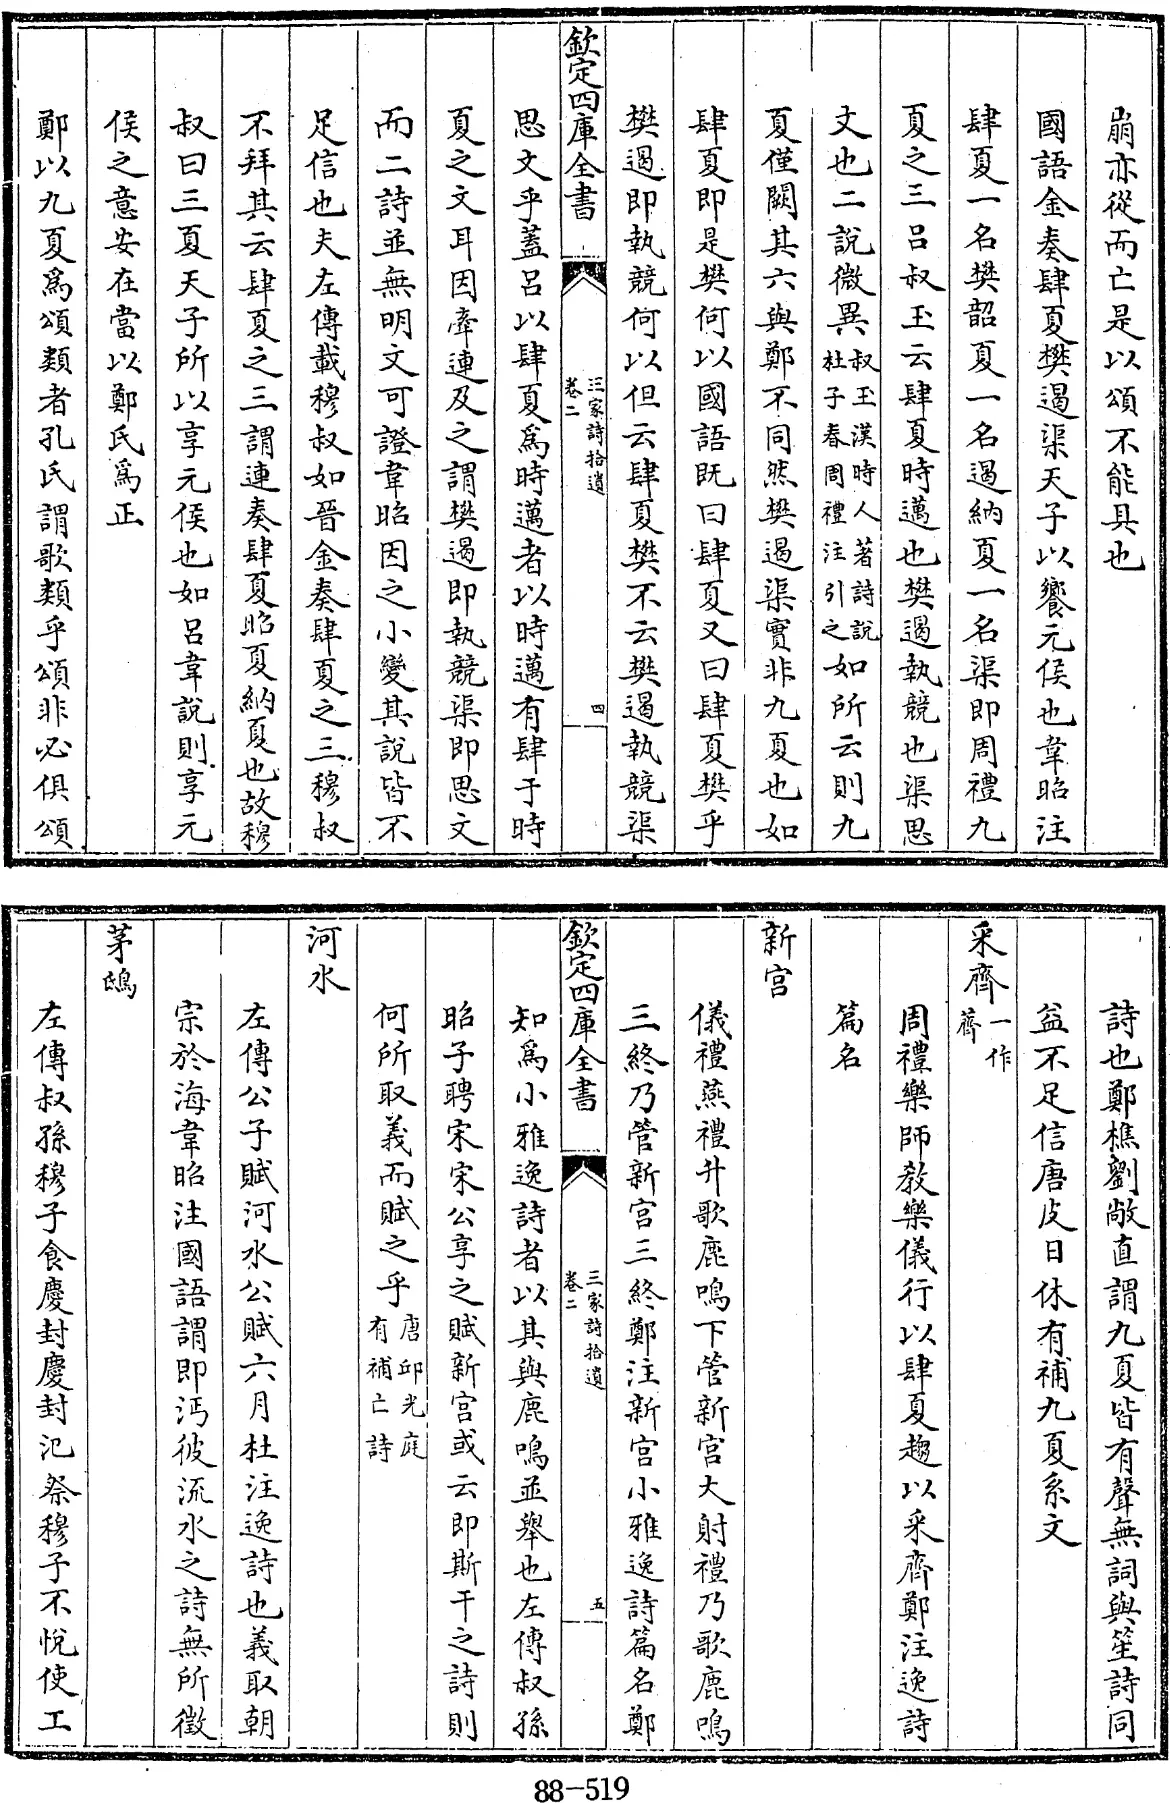 崩亦從而亡是以頌不能具也
國語金奏肆夏樊遏渠天子以饗元侯也韋昭注
肆夏一名樊韶夏一名遏納夏一名渠即周禮九
夏之三呂叔玉云肆夏時邁也樊遏執競也渠思
文也二說微異叔玉漢時人著詩說杜子春周禮注引之如所云則九
夏僅闕其六與鄭不同然樊遏渠實非九夏也如
肆夏即是樊何以國語既曰肆夏又曰肆夏樊乎
樊遏即執競何以但云肆夏樊不云樊遏執競渠
欽定四庫全書
三家詩拾遺
卷二
四
思文乎蓋呂以肆夏爲時邁者以時邁有肆于時
夏之文耳因牽連及之謂樊遏即執競渠即思文
而二詩並無明文可證韋昭因之小變其說皆不
足信也夫左傳載穆叔如晉金奏肆夏之三穆叔
不拜其云肆夏之三謂連奏肆夏昭夏納夏也故穆
叔曰三夏天子所以享元侯也如呂韋說則享元
侯之意安在當以鄭氏爲正
鄭以九夏爲頌類者孔氏謂歌類乎頌非必俱頌
詩也鄭樵劉敞直謂九夏皆有聲無詞與笙詩同
益不足信唐皮日休有補九夏系文
采齊一作薺
周禮樂師教樂儀行以肆夏趨以采齊鄭注逸詩
篇名
新宮
儀禮燕禮升歌鹿鳴下管新宮大射禮乃歌鹿鳴
三終乃管新宮三終鄭注新宮小雅逸詩篇名鄭
欽定四庫全書
三家詩拾遺
卷二
五
知爲小雅逸詩者以其與鹿鳴並舉也左傳叔孫
昭子聘宋宋公享之賦新宮或云即斯干之詩則
何所取義而賦之乎唐邱光庭有補亡詩
河水
左傳公子賦河水公賦六月杜注逸詩也義取朝
宗於海韋昭注國語謂即沔彼流水之詩無所徵
茅鴟
左傳叔孫穆子食慶封慶封氾祭穆子不悅使工
88-519